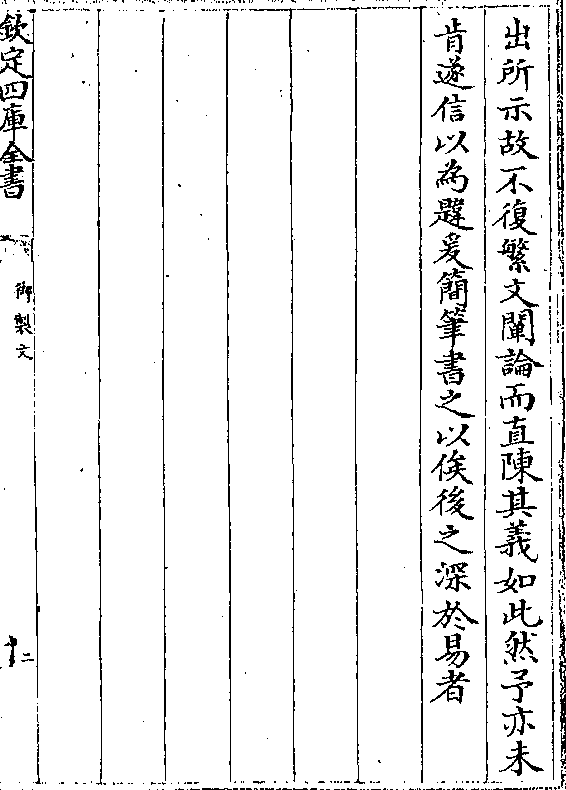 出所示故不復繁文闡論而直陳其義如此然予亦未
肯遂信以為韙爰簡筆書之以俟後之深於易者
欽定四庫全書
御製文
二